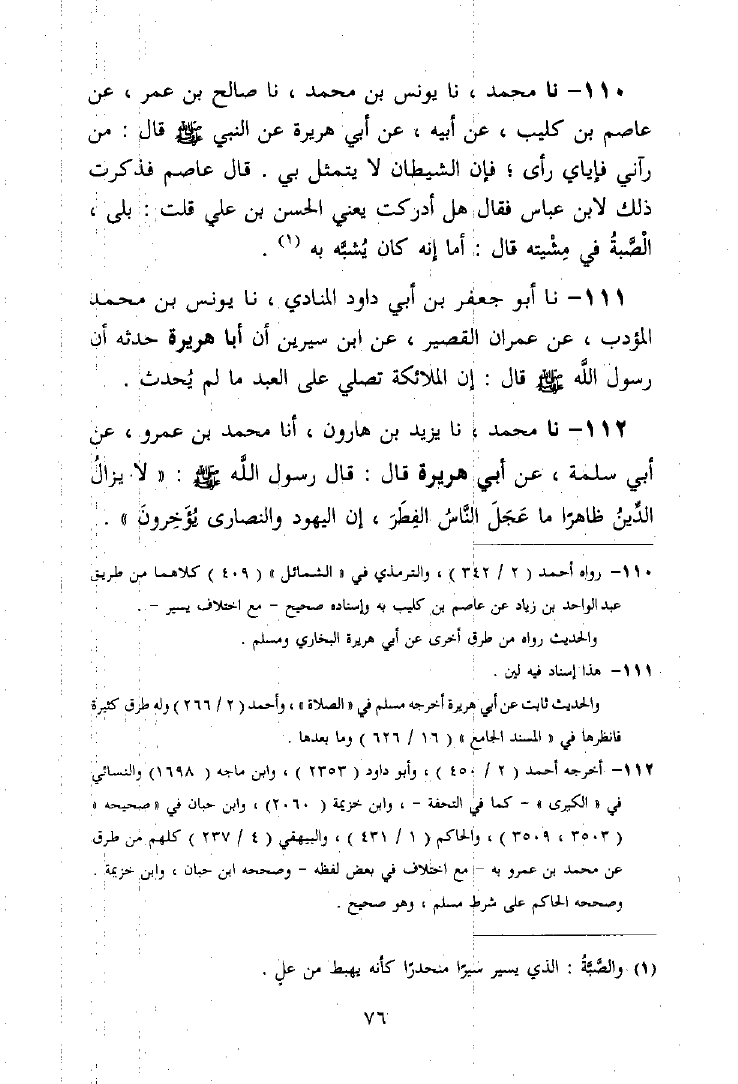 ١١٠- نا محمد ، نا يونس بن محمد ، نا صالح بن عمر ، عن
عاصم بن كليب ، عن أبيه ، عن أبي هريرة عن النبي ﷺ قال : من
رآني فإياي رأى ؛ فإن الشيطان لا يتمثل بي . قال عاصم فذكرت
ذلك لابن عباس فقال هل أدركت يعني الحسن بن علي قلت : بلى ،
الْصَّبةُ في مِشْيته قال : أما إنه كان يُشبَّه به (١) .
١١١- نا أبو جعفر بن أبي داود المنادي ، نا يونس بن محمد
المؤدب ، عن عمران القصير ، عن ابن سيرين أن أبا هريرة حدثه أن
رسول اللَّه ﷺ قال : إن الملائكة تصلي على العبد ما لم يُحدث .
١١٢- نا محمد ، نا يزيد بن هارون ، أنا محمد بن عمرو ، عن
أبي سلمة ، عن أبي هريرة قال : قال رسول اللَّه ﷺ : « لا يزالُ
الدِّينُ ظاهرًا ما عَجَلَ النَّاسُ الفِطَرَ ، إن اليهود والنصارى يُؤَخِرونَ » .
١١٠- رواه أحمد ( ٢ / ٣٤٢ ) ، والترمذي في « الشمائل » ( ٤٠٩ ) كلاهما من طريق
عبد الواحد بن زياد عن عاصم بن كليب به وإسناده صحيح - مع اختلاف يسير - .
والحديث رواه من طرق أخرى عن أبي هريرة البخاري ومسلم .
١١١- هذا إسناد فيه لين .
والحديث ثابت عن أبي هريرة أخرجه مسلم في « الصلاة » ، وأحمد ( ٢ / ٢٦٦ ) وله طرق كثيرة
فانظرها في « المسند الجامع » ( ١٦ / ٦٢٦ ) وما بعدها .
١١٢- أخرجه أحمد ( ٢ / ٤٥٠ ) ، وأبو داود ( ٢٣٥٣ ) ، وابن ماجه ( ١٦٩٨ ) والنسائي
في « الكبرى » - كما في التحفة - ، وابن خزيمة ( ٢٠٦٠ ) ، وابن حبان في « صحيحه »
( ٣٥٠٣ ، ٣٥٠٩ ) ، والحاكم ( ١ / ٤٣١ ) ، والبيهقي ( ٤ / ٢٣٧ ) كلهم من طرق
عن محمد بن عمرو به - مع اختلاف في بعض لفظه - وصححه ابن حبان ، وابن خزيمة .
وصححه الحاكم على شرط مسلم ، وهو صحيح .
(١) والصَّبَّةُ : الذي يسير سيرًا منحدرًا كأنه يهبط من علٍ .
٧٦